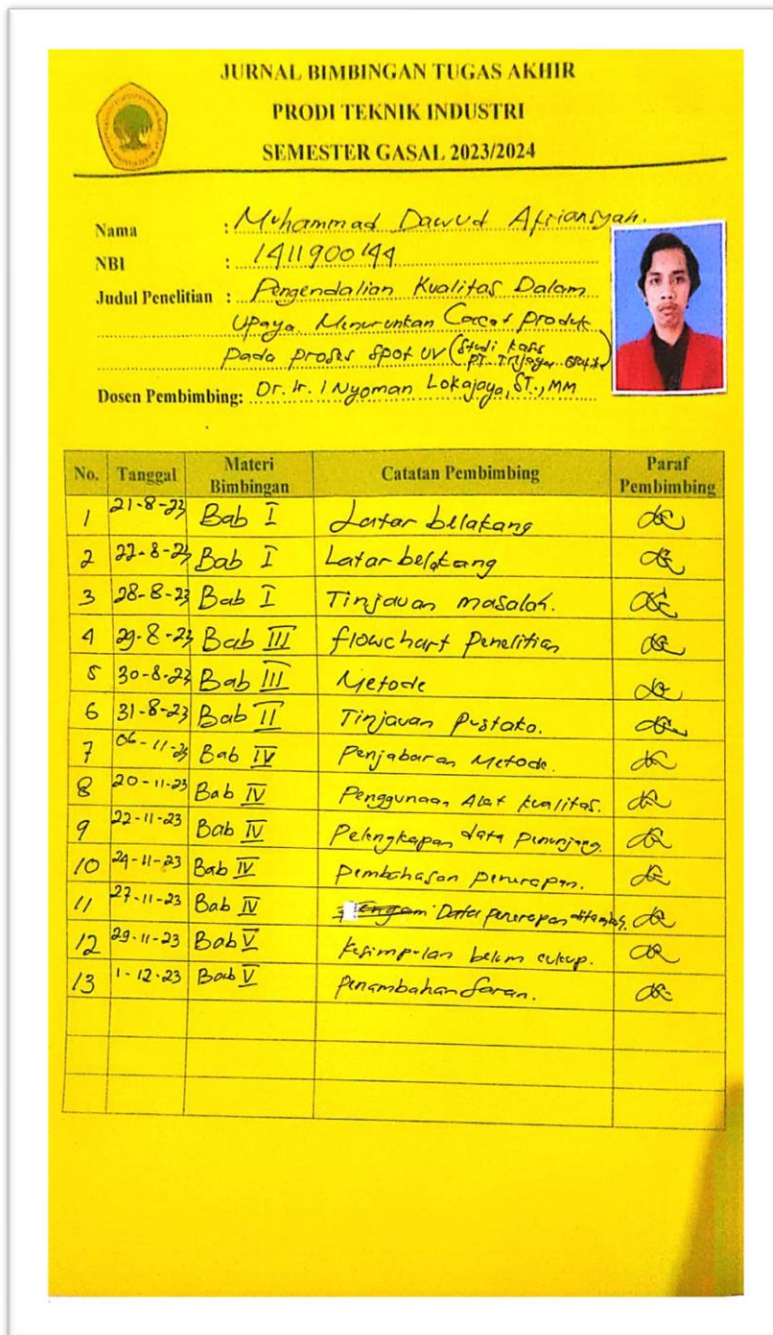 JURNAL BIMBINGAN TUGAS AKHIR
PRODI TEKNIK INDUSTRI
SEMESTER GASAL 2023/2024
Nama : Muhammad Dawud Afriansyah.
NBI : 1411900144
Judul Penelitian : Pengendalian Kualitas Dalam
Upaya Menurunkan Cacat Produk
Pada Proses Spot UV (Studi Kasus
PT. Trijaya
Dosen Pembimbing: Dr. Ir. I Nyoman Lokajaya, ST., MM
No. Tanggal Materi Bimbingan Catatan Pembimbing Paraf Pembimbing
1 21-8-23 Bab I Latar belakang
2 22-8-23 Bab I Latar belakang
3 28-8-23 Bab I Tinjauan masalah.
4 29-8-23 Bab III flowchart Penelitian
5 30-8-23 Bab III Metode
6 31-8-23 Bab II Tinjauan Pustaka.
7 06-11-23 Bab IV Penjabaran Metode.
8 20-11-23 Bab IV Penggunaan Alat kualitas.
9 22-11-23 Bab IV Pelengkapan data Penunjang.
10 24-11-23 Bab IV pembahasan penerapan.
11 27-11-23 Bab IV Data penerapan ditambah.
12 29-11-23 Bab V kesimpulan belum cukup.
13 1-12-23 Bab V Penambahan Saran.